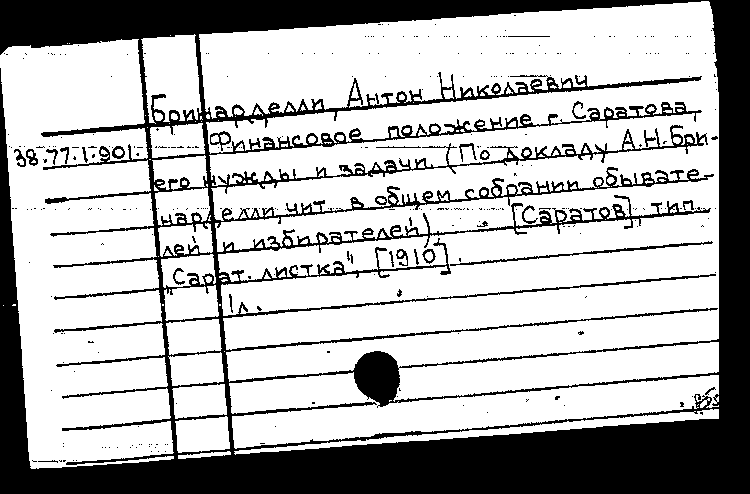 Бринарделли, Антон Николаевич
38.77.1.901. Финансовое положение г. Саратова,
его нужды и задачи. (По докладу А.Н.Бри-
нарделли, чит. в общем собрании обывате-
лей и избирателей). [Саратов], тип.
„Сарат. листка", [1910].
1л.